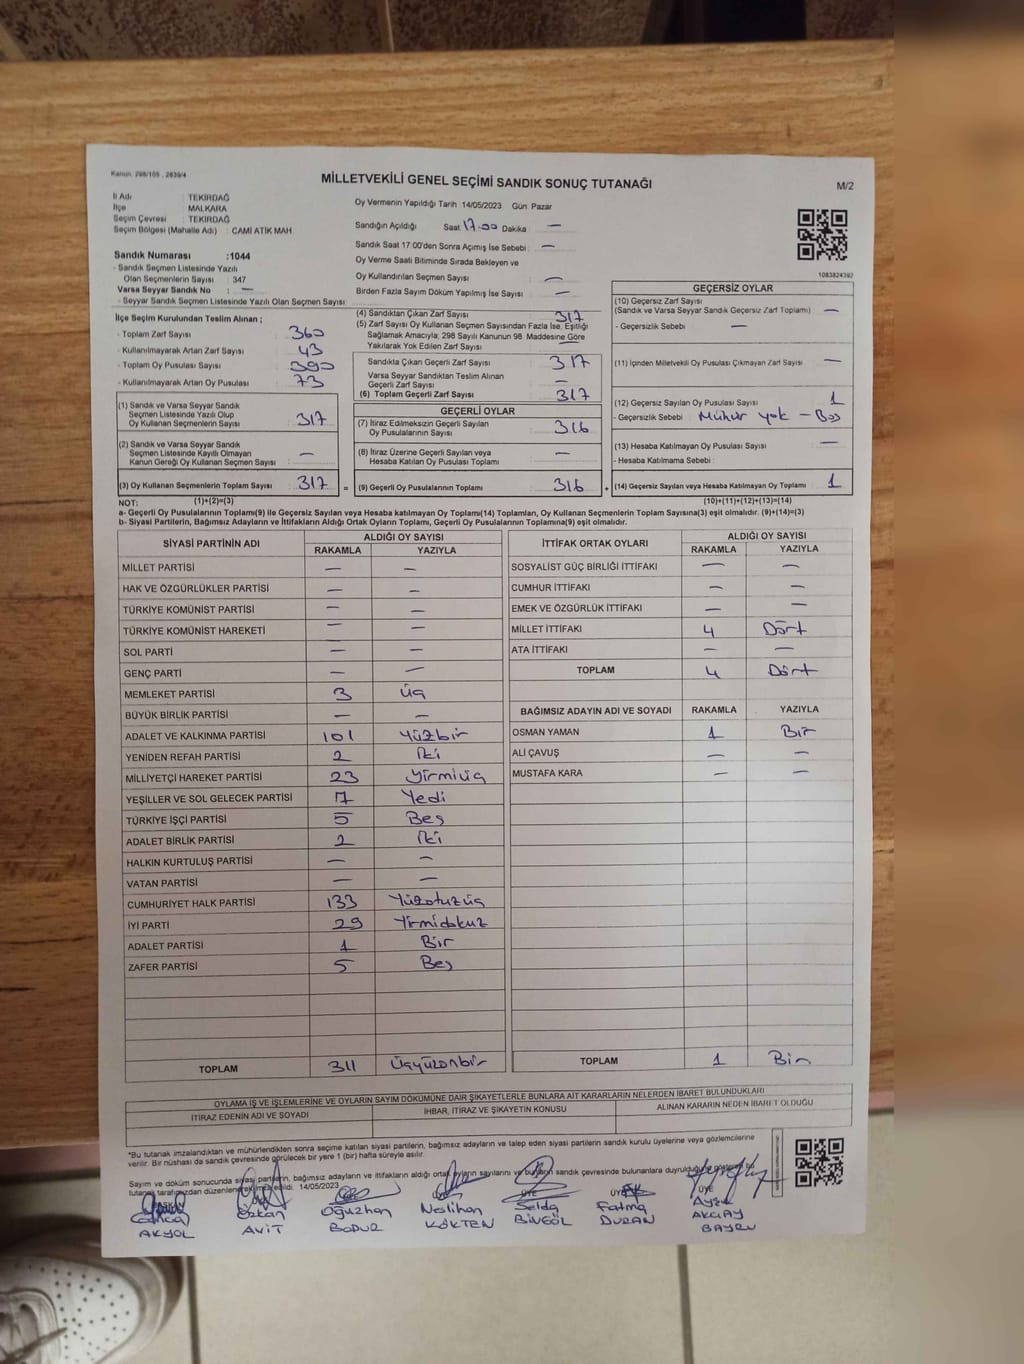 Kanun: 298/105 , 2839/4
MİLLETVEKİLİ GENEL SEÇİMİ SANDIK SONUÇ TUTANAĞI
M/2
İl Adı : TEKİRDAĞ
İlçe : MALKARA
Seçim Çevresi : TEKİRDAĞ
Seçim Bölgesi (Mahalle Adı) : CAMİ ATİK MAH
Oy Vermenin Yapıldığı Tarih : 14/05/2023 Gün: Pazar
Sandığın Açıldığı Saat 17.00 Dakika : —
Sandık Saat 17.00'den Sonra Açımış İse Sebebi : —
Oy Verme Saati Bitiminde Sırada Bekleyen ve
Oy Kullandırılan Seçmen Sayısı : —
Birden Fazla Sayım Döküm Yapılmış İse Sayısı : —
1083824392
Sandık Numarası :1044
- Sandık Seçmen Listesinde Yazılı
Olan Seçmenlerin Sayısı : 347
Varsa Seyyar Sandık No : —
- Seyyar Sandık Seçmen Listesinde Yazılı Olan Seçmen Sayısı:
İlçe Seçim Kurulundan Teslim Alınan ;
- Toplam Zarf Sayısı : 360
- Kullanılmayarak Artan Zarf Sayısı : 43
- Toplam Oy Pusulası Sayısı : 390
- Kullanılmayarak Artan Oy Pusulası : 73
(1) Sandık ve Varsa Seyyar Sandık
Seçmen Listesinde Yazılı Olup
Oy Kullanan Seçmenlerin Sayısı : 317
(2) Sandık ve Varsa Seyyar Sandık
Seçmen Listesinde Kayıtlı Olmayan
Kanun Gereği Oy Kullanan Seçmen Sayısı : —
(3) Oy Kullanan Seçmenlerin Toplam Sayısı : 317
(4) Sandıktan Çıkan Zarf Sayısı : 317
(5) Zarf Sayısı Oy Kullanan Seçmen Sayısından Fazla İse, Eşitliği
Sağlamak Amacıyla, 298 Sayılı Kanunun 98. Maddesine Göre
Yakılarak Yok Edilen Zarf Sayısı : —
Sandıkta Çıkan Geçerli Zarf Sayısı : 317
Varsa Seyyar Sandıktan Teslim Alınan
Geçerli Zarf Sayısı : —
(6) Toplam Geçerli Zarf Sayısı : 317
GEÇERLİ OYLAR
(7) İtiraz Edilmeksizin Geçerli Sayılan
Oy Pusulalarının Sayısı : 316
(8) İtiraz Üzerine Geçerli Sayılan veya
Hesaba Katılan Oy Pusulası Toplamı : —
= (9) Geçerli Oy Pusulalarının Toplamı : 316
GEÇERSİZ OYLAR
(10) Geçersiz Zarf Sayısı
(Sandık ve Varsa Seyyar Sandık Geçersiz Zarf Toplamı) : —
- Geçersizlik Sebebi : —
(11) İçinden Milletvekili Oy Pusulası Çıkmayan Zarf Sayısı : —
(12) Geçersiz Sayılan Oy Pusulası Sayısı : 1
- Geçersizlik Sebebi : Mühür yok – Boş
(13) Hesaba Katılmayan Oy Pusulası Sayısı : —
- Hesaba Katılmama Sebebi :
+ (14) Geçersiz Sayılan veya Hesaba Katılmayan Oy Toplamı : 1
NOT: (1)+(2)=(3)
(10)+(11)+(12)+(13)=(14)
a- Geçerli Oy Pusulalarının Toplamı(9) ile Geçersiz Sayılan veya Hesaba katılmayan Oy Toplamı(14) Toplamları, Oy Kullanan Seçmenlerin Toplam Sayısına(3) eşit olmalıdır. (9)+(14)=(3)
b- Siyasi Partilerin, Bağımsız Adayların ve İttifakların Aldığı Ortak Oyların Toplamı, Geçerli Oy Pusulalarının Toplamına(9) eşit olmalıdır.
SİYASİ PARTİNİN ADI ALDIĞI OY SAYISI
RAKAMLA YAZIYLA
MİLLET PARTİSİ — —
HAK VE ÖZGÜRLÜKLER PARTİSİ — —
TÜRKİYE KOMÜNİST PARTİSİ — —
TÜRKİYE KOMÜNİST HAREKETİ — —
SOL PARTİ — —
GENÇ PARTİ — —
MEMLEKET PARTİSİ 3 Üç
BÜYÜK BİRLİK PARTİSİ — —
ADALET VE KALKINMA PARTİSİ 101 Yüzbir
YENİDEN REFAH PARTİSİ 2 İki
MİLLİYETÇİ HAREKET PARTİSİ 23 Yirmiüç
YEŞİLLER VE SOL GELECEK PARTİSİ 7 Yedi
TÜRKİYE İŞÇİ PARTİSİ 5 Beş
ADALET BİRLİK PARTİSİ 2 İki
HALKIN KURTULUŞ PARTİSİ — —
VATAN PARTİSİ — —
CUMHURİYET HALK PARTİSİ 133 Yüzotuzüç
İYİ PARTİ 29 Yirmidokuz
ADALET PARTİSİ 1 Bir
ZAFER PARTİSİ 5 Beş
TOPLAM 311 Üçyüzonbir
İTTİFAK ORTAK OYLARI ALDIĞI OY SAYISI
RAKAMLA YAZIYLA
SOSYALİST GÜÇ BİRLİĞİ İTTİFAKI — —
CUMHUR İTTİFAKI — —
EMEK VE ÖZGÜRLÜK İTTİFAKI — —
MİLLET İTTİFAKI 4 Dört
ATA İTTİFAKI — —
TOPLAM 4 Dört
BAĞIMSIZ ADAYIN ADI VE SOYADI RAKAMLA YAZIYLA
OSMAN YAMAN 1 Bir
ALİ ÇAVUŞ — —
MUSTAFA KARA — —
TOPLAM 1 Bir
OYLAMA İŞ VE İŞLEMLERİNE VE OYLARIN SAYIM DÖKÜMÜNE DAİR ŞİKAYETLERLE BUNLARA AİT KARARLARIN NELERDEN İBARET BULUNDUKLARI
İTİRAZ EDENİN ADI VE SOYADI İHBAR, İTİRAZ VE ŞİKAYETİN KONUSU ALINAN KARARIN NEDEN İBARET OLDUĞU
*Bu tutanak imzalandıktan ve mühürlendikten sonra seçime katılan siyasi partilerin, bağımsız adayların ve talep eden siyasi partilerin sandık kurulu üyelerine veya gözlemcilerine
verilir. Bir nüshası da sandık çevresinde görülecek bir yere 1 (bir) hafta süreyle asılır.
Sayım ve döküm sonucunda siyasi partilerin, bağımsız adayların ve ittifakların aldığı ortak oyların sayılarını ve bunların sandık çevresinde bulunanlara duyurulduğunu
tutanak tarafımızdan düzenlenerek 14/05/2023
BAŞKAN ÜYE ÜYE ÜYE ÜYE
Özkan Oğuzhan Neslihan Selda Fatma
AKYOL AVİT BODUR KÖKTEN BİNGÖL DURAN AKÇAY